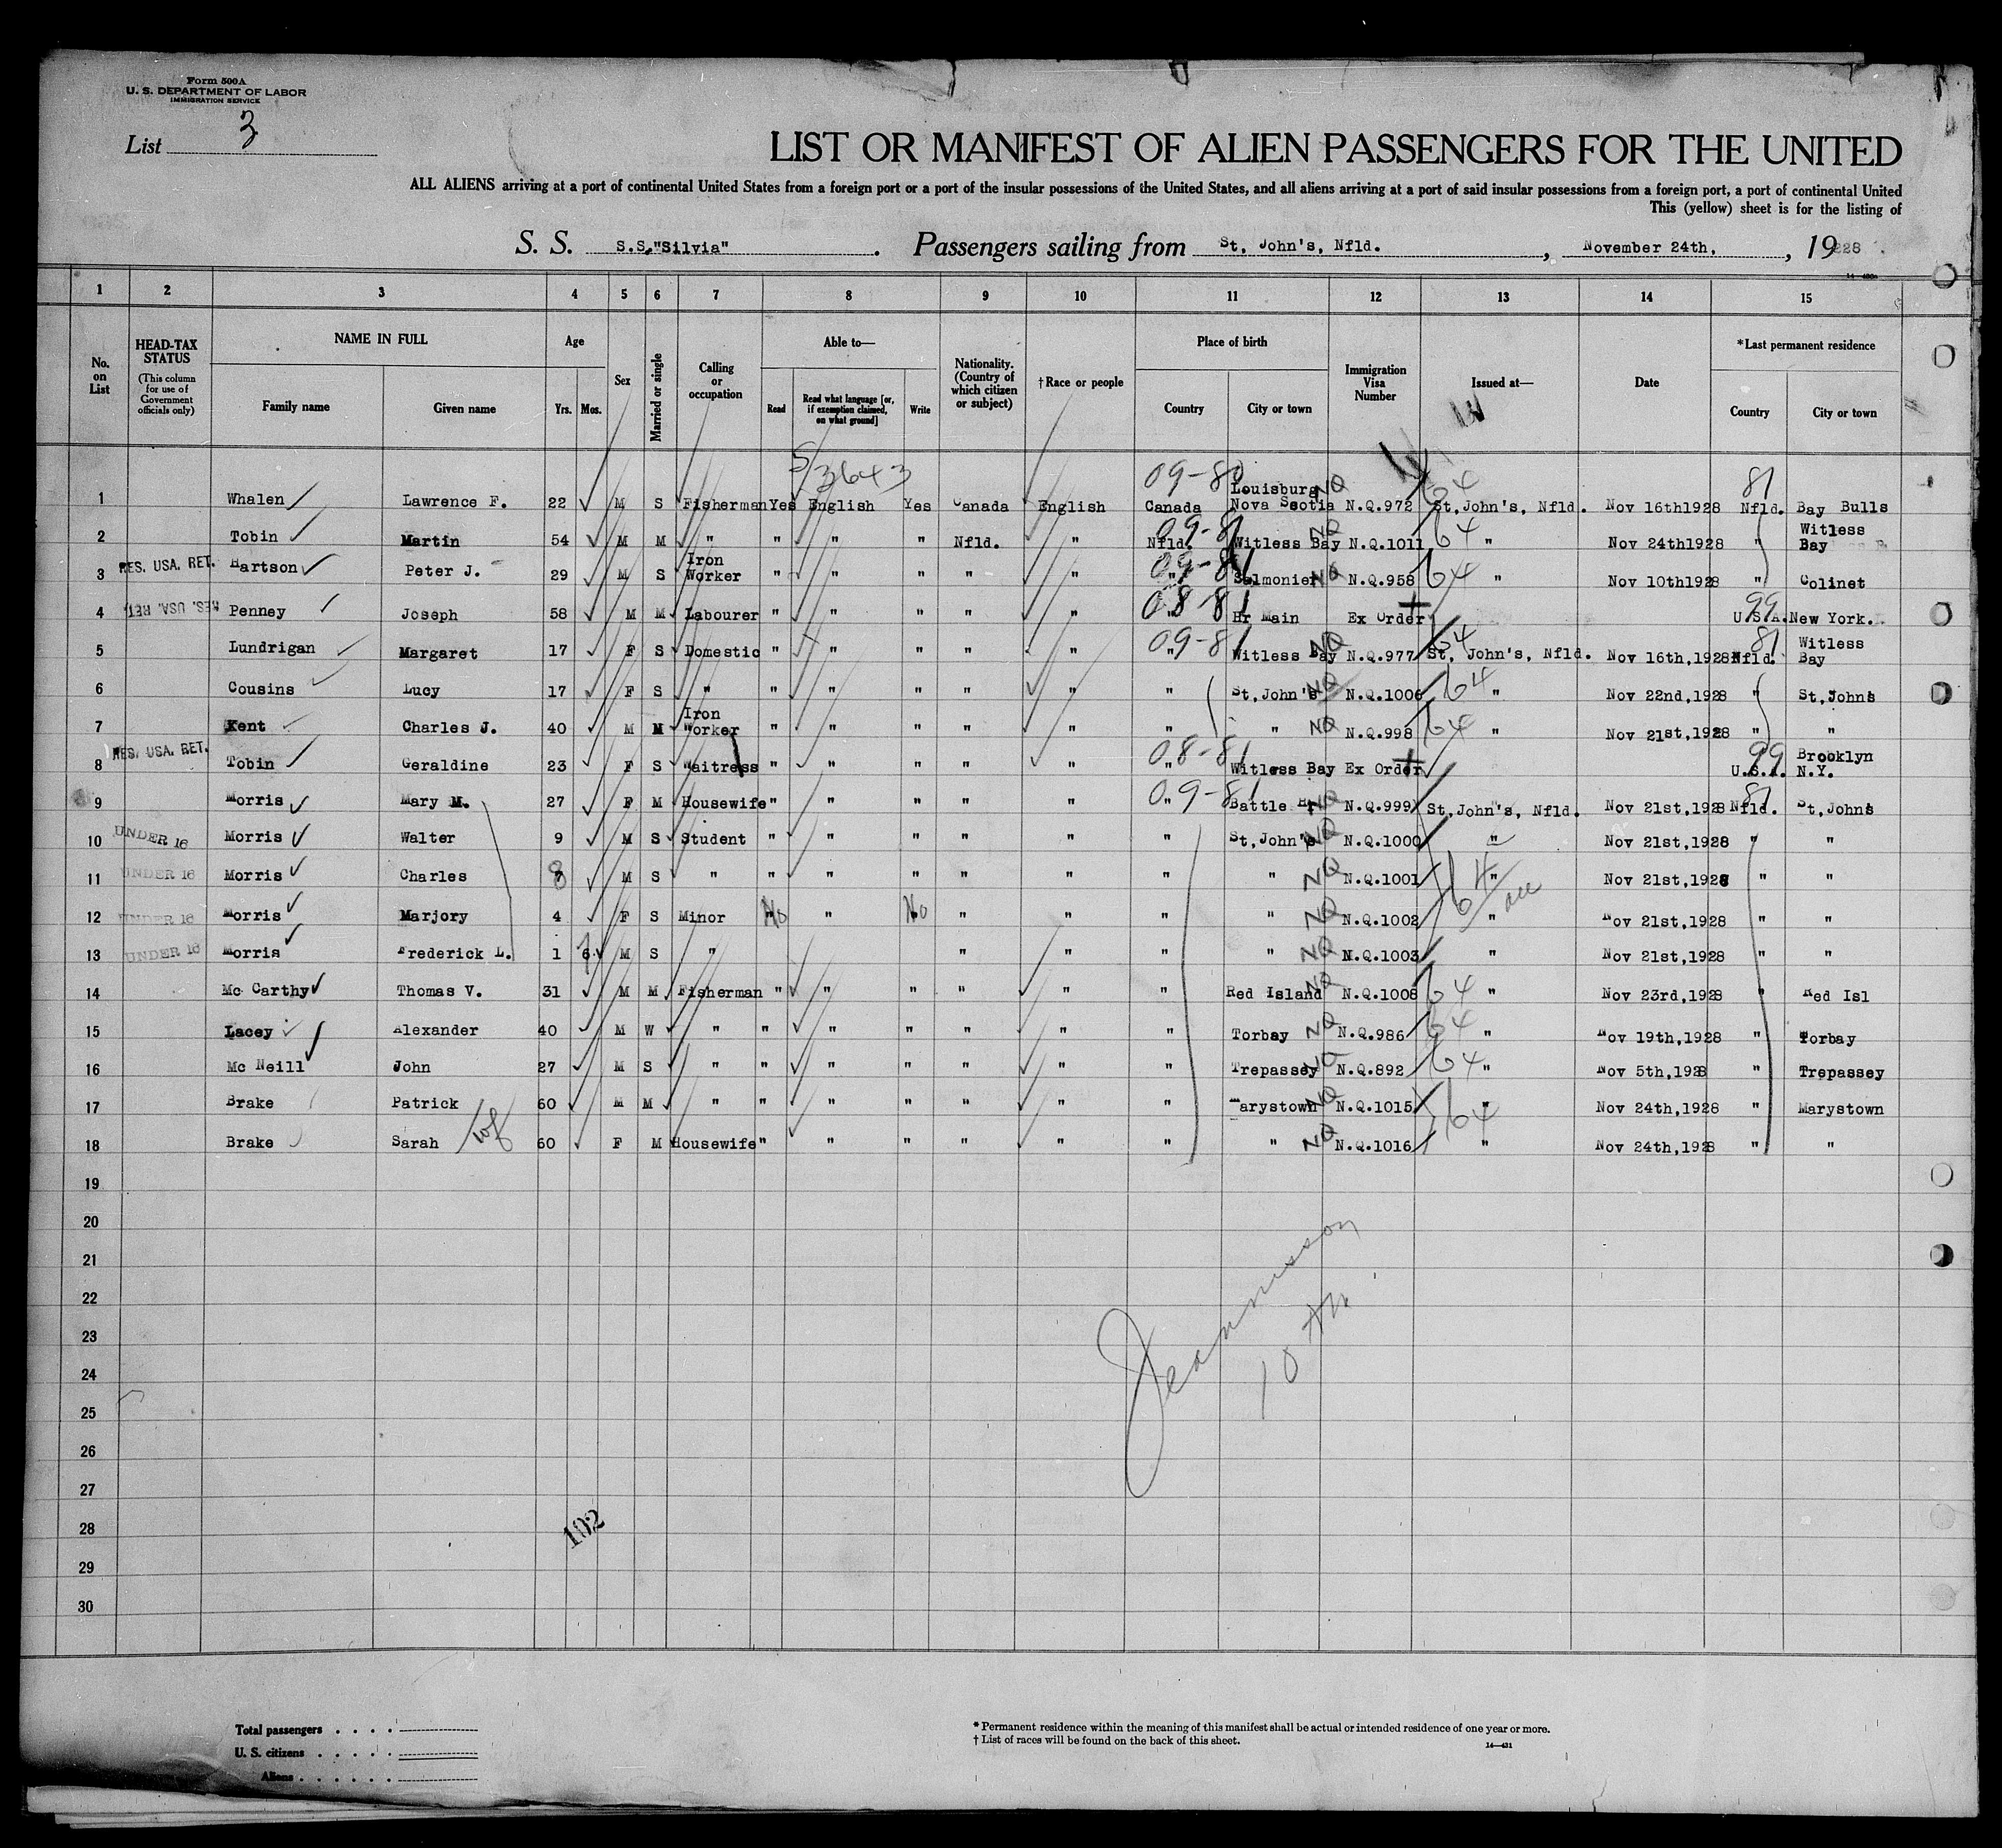 Form 500A
U. S. DEPARTMENT OF LABOR
IMMIGRATION SERVICE
List 3
LIST OR MANIFEST OF ALIEN PASSENGERS FOR THE UNITED
ALL ALIENS arriving at a port of continental United States from a foreign port or a port of the insular possessions of the United States, and all aliens arriving at a port of said insular possessions from a foreign port, a port of continental United
This (yellow) sheet is for the listing of
S. S. S.S."Silvia" . Passengers sailing from St, John's, Nfld. , November 24th, , 1928
1 2 3 4 5 6 7 8 9 10 11 12 13 14 15
No. on List
HEAD-TAX STATUS
(This column for use of Government officials only)
NAME IN FULL
Family name Given name
Age
Yrs. Mos.
Sex
Married or single
Calling or occupation
Able to—
Read
Read what language [or, if exemption claimed, on what ground]
Write
Nationality. (Country of which citizen or subject)
†Race or people
Place of birth
Country City or town
Immigration Visa Number
Issued at—
Date
*Last permanent residence
Country City or town
5/3643
1 Whalen Lawrence F. 22 M S Fisherman Yes English Yes Canada English 09-80 Canada Louisburg Nova Scotia NQ N.Q.972 64 St,John's, Nfld. Nov 16th1928 81 Nfld. Bay Bulls
2 Tobin Martin 54 M M " " " " Nfld. " 09-81 Nfld. Witless Bay NQ N.Q.1011 64 " Nov 24th1928 " Witless Bay
3 RES. USA. RET. Hartson Peter J. 29 M S Iron Worker " " " " " 09-81 " Salmonier NQ N.Q.958 64 " Nov 10th1928 " Colinet
4 RES. USA. RET. Penney Joseph 58 M M Labourer " " " " " 08-81 " Hr Main Ex Order 99 U.S.A. New York.
5 Lundrigan Margaret 17 F S Domestic " " " " " 09-81 " Witless Bay NQ N.Q.977 64 St, John's, Nfld. Nov 16th,1928 81 Nfld. Witless Bay
6 Cousins Lucy 17 F S " " " " " " " St,John's NQ N.Q.1006 64 " Nov 22nd,1928 " St,Johns
7 Kent Charles J. 40 M M Iron Worker " " " " " " " NQ N.Q.998 64 " Nov 21st,1928 " "
8 RES. USA. RET. Tobin Geraldine 23 F S Waitress " " " " " 08-81 " Witless Bay Ex Order 99 U.S.A. Brooklyn N.Y.
9 Morris Mary M. 27 F M Housewife " " " " " 09-81 " Battle Hr NQ N.Q.999 St,John's, Nfld. Nov 21st,1928 81 Nfld. St,Johns
10 UNDER 16 Morris Walter 9 M S Student " " " " " " St,John's NQ N.Q.1000 " Nov 21st,1928 " "
11 UNDER 16 Morris Charles 8 M S " " " " " " " " NQ N.Q.1001 64 all " Nov 21st,1928 " "
12 UNDER 16 Morris Marjory 4 F S Minor No " No " " " " NQ N.Q.1002 " Nov 21st,1928 " "
13 UNDER 16 Morris Frederick L. 1 6 M S " " " " " NQ N.Q.1003 " Nov 21st,1928 " "
14 Mc Carthy Thomas V. 31 M M Fisherman " " " " " " Red Island NQ N.Q.1008 64 " Nov 23rd,1928 " Red Isl
15 Lacey Alexander 40 M W " " " " " " " Torbay NQ N.Q.986 64 " Nov 19th,1928 " Torbay
16 Mc Neill John 27 M S " " " " " " " Trepassey NQ N.Q.892 64 " Nov 5th,1928 " Trepassey
17 Brake Patrick 60 M M " " " " " " " Marystown NQ N.Q.1015 64 " Nov 24th,1928 " Marystown
18 Brake Sarah wf 60 F M Housewife " " " " " " " NQ N.Q.1016 " Nov 24th,1928 " "
19
20
21
22
23
24
25
26
27
28
29
30
10
102
Total passengers . . . .
U. S. citizens . . . . .
Aliens . . . . . .
* Permanent residence within the meaning of this manifest shall be actual or intended residence of one year or more.
† List of races will be found on the back of this sheet.
14—431